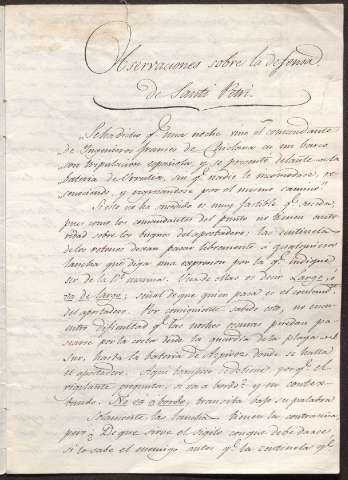 Observaciones sobre la defensa
de Santi Petri.
Se ha dicho q.e una noche vino el comandante
de Ingenieros frances de Chiclana en un barco
con tripulacion española, y se presentó delante de la
bateria de Urrutia, sin q.e nadie le incomodase,
renociendo, y regresandose por el mismo camino.
Si esto no ha sucedido es muy factible q.e suceda,
pues como los comandantes del punto no tienen auto-
ridad sobre los buques del apostadero; las centinelas
de los botones dexan pasar libremente a qualquiera
lancha que diga una expresion por la q.e indique
ser de la R.l marina. Una de ellas es decir Largo, ó
va de largo, señal de que quien pasa es el comand.te
del apostadero. Por consiguiente sabido esto, no encu-
entro dificultad q.e las noches obscuras puedan pa-
sarse por la costa desde la guardia de la playa del
Sur, hasta la bateria de Aspiroz donde se halla
el apostadero. Aqui tampoco tendrian por q.e el
vigilante pregunta, si va a bordo? y en contes-
tando. No va a bordo, transita bajo su palabra
Solamente las lanchas tienen la contraseña,
pero? De que sirve el sigilo con que debe darse,
si lo sabe el enemigo antes q.e la centinela q.e